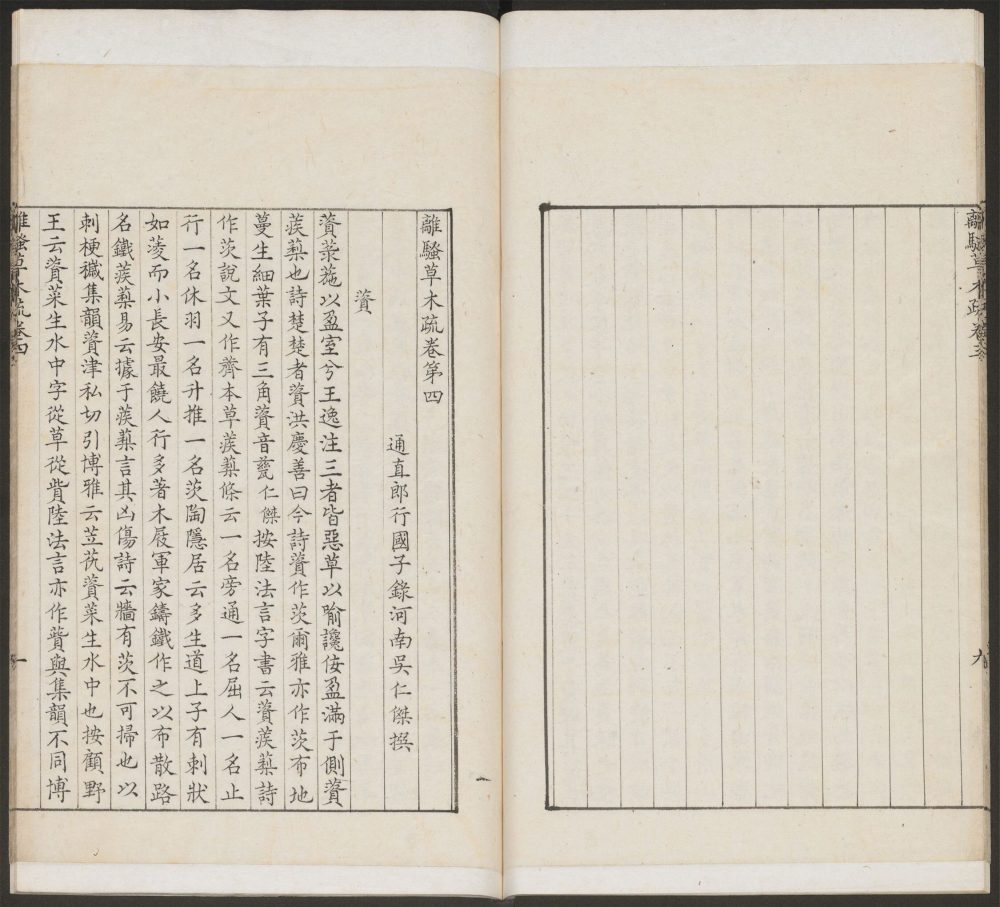 離騷草木疏卷
九
離騷草木疏卷第四
通直郎行國子錄河南吳仁傑撰
薋
薋菉葹以盈室兮王逸注三者皆惡草以喻讒佞盈滿于側薋
蒺蔾也詩楚楚者薋洪慶善曰今詩薋作茨爾雅亦作茨布地
蔓生細葉子有三角薋音甆仁傑按陸法言字書云薋蒺蔾詩
作茨說文又作薺本草蒺蔾條云一名旁通一名屈人一名止
行一名休羽一名升推一名茨陶隱居云多生道上子有刺狀
如菱而小長安最饒人行多著木屐軍家鑄鐵作之以布散路
名鐵蒺蔾易云據于蒺蔾言其凶傷詩云牆有茨不可掃也以
刺梗穢集韻薋津私切引博雅云苙芤薋菜生水中也按顧野
王云薋菜生水中字從草從貲陸法言亦作薋與集韻不同博
離騷草木疏卷四
一